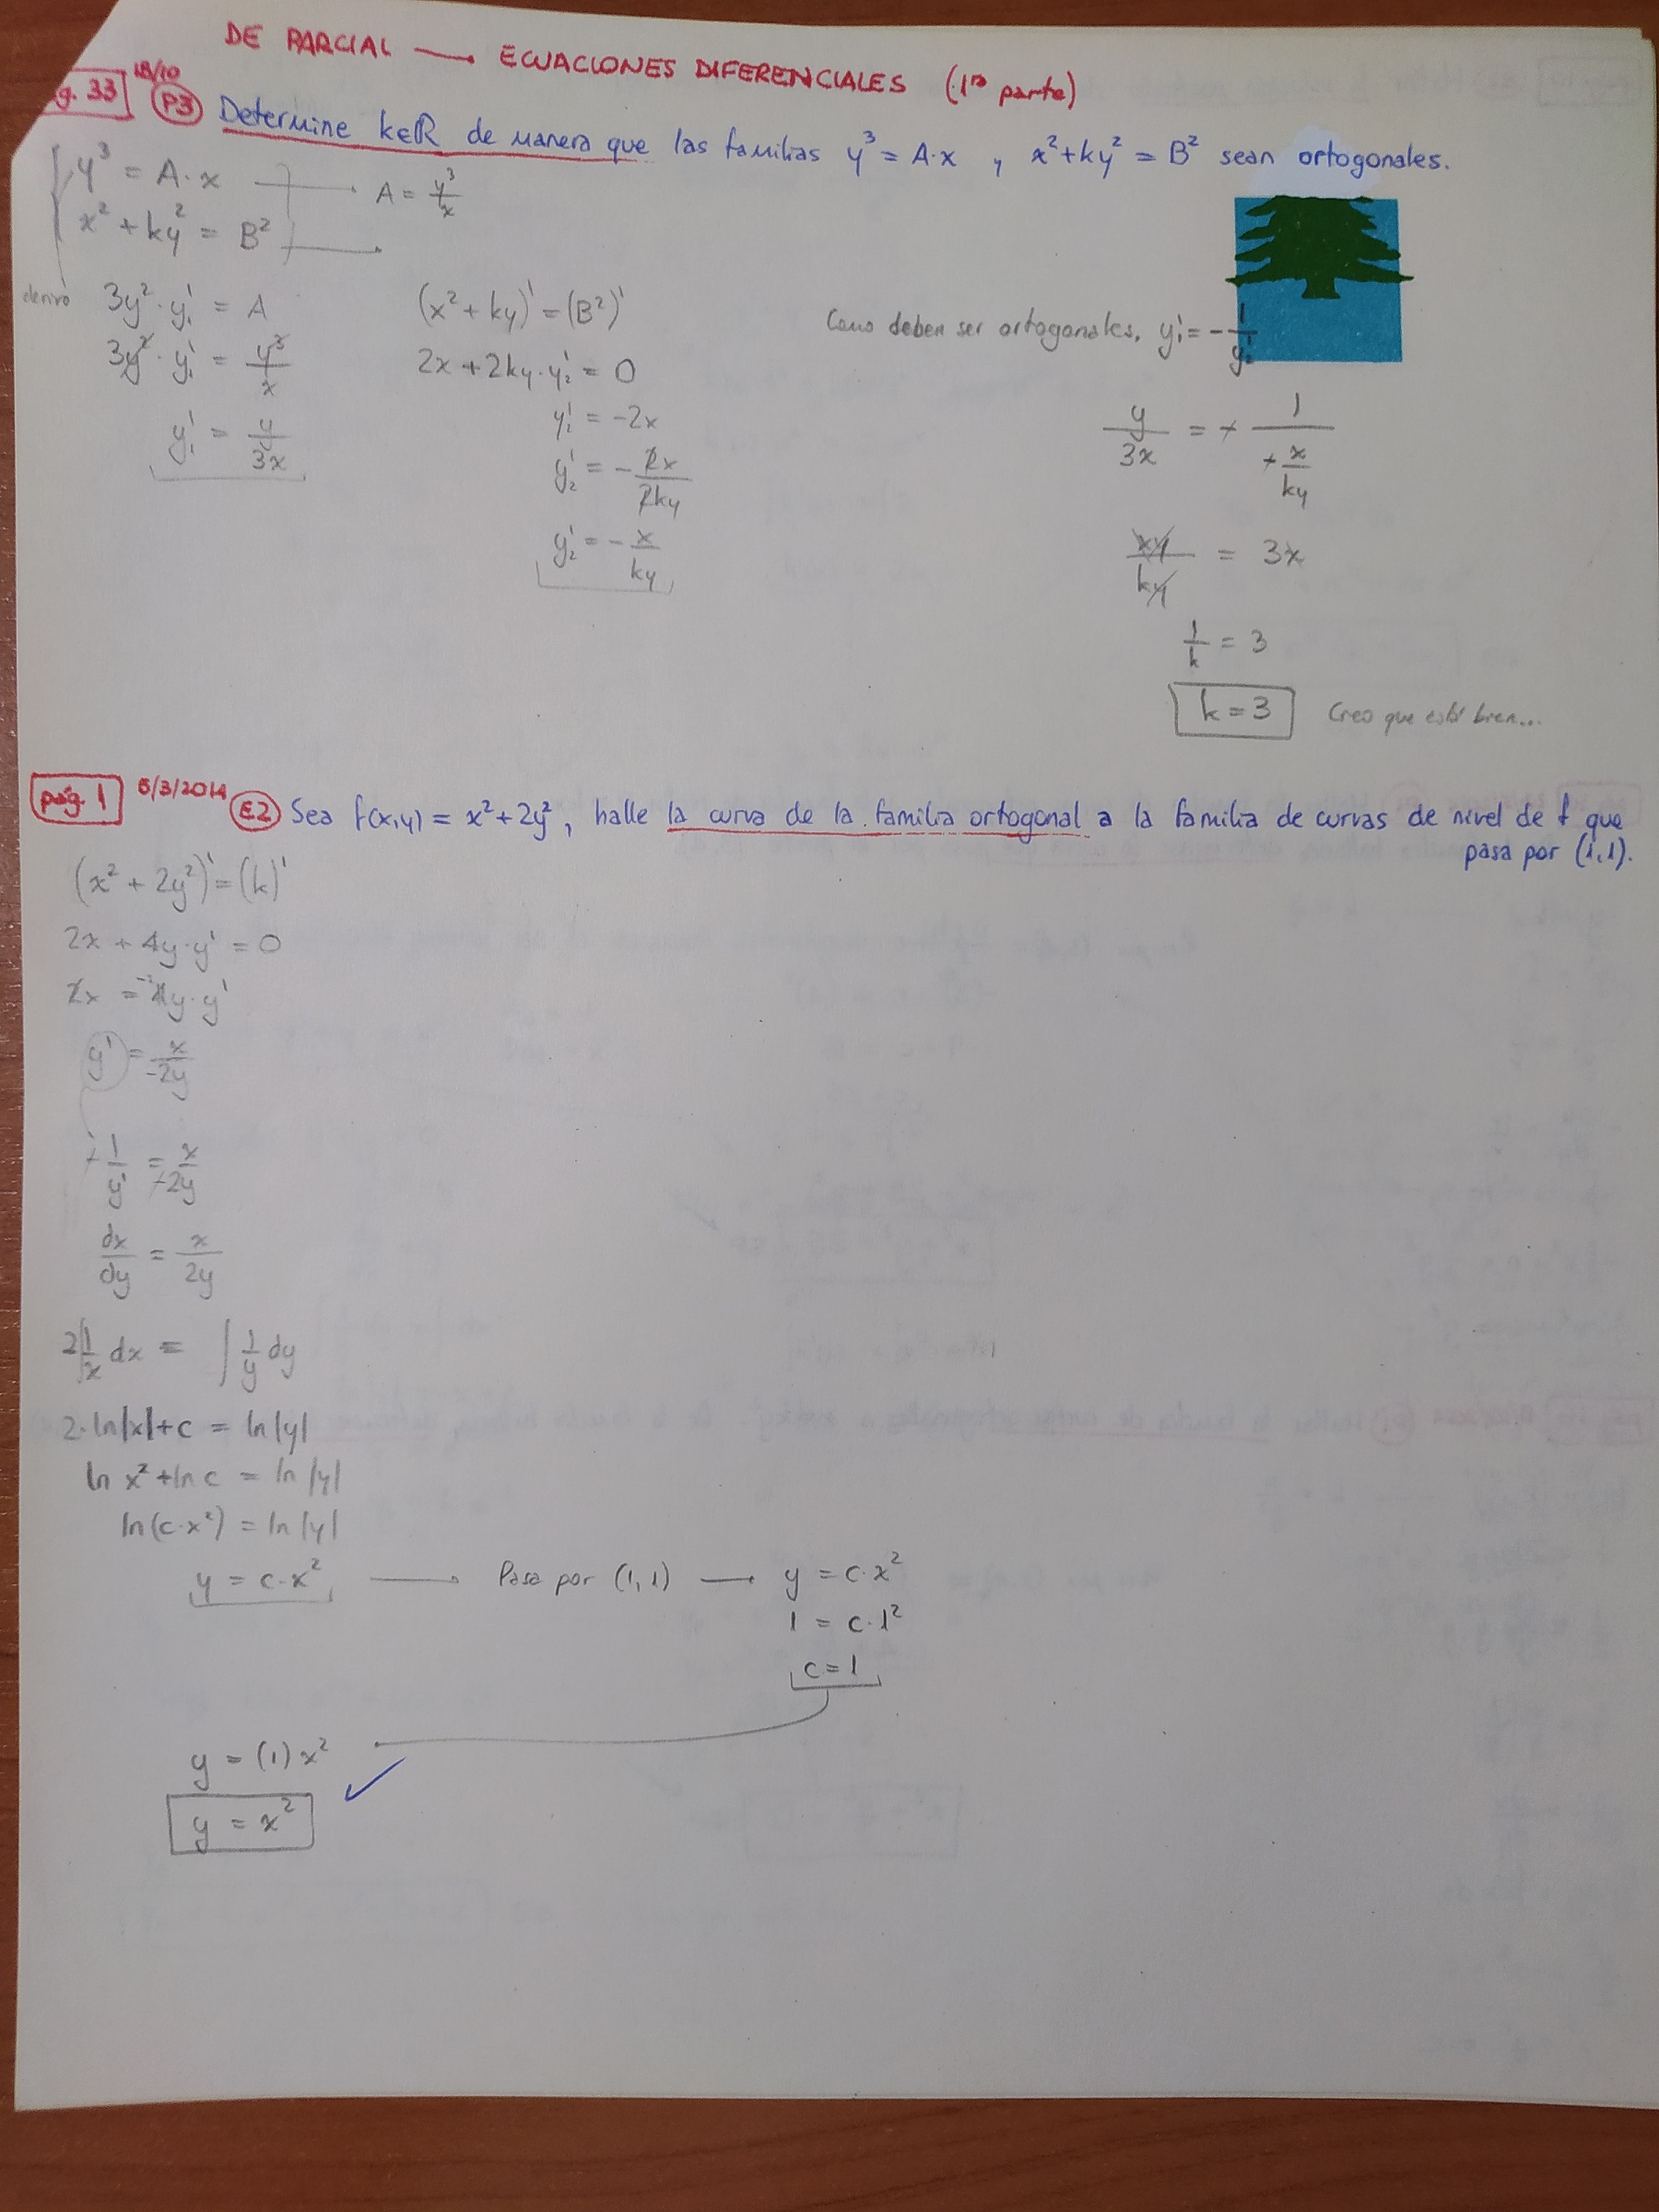 DE PARCIAL → ECUACIONES DIFERENCIALES (1ra parte)
g. 33 18/10 P3 Determine k∈ℝ de manera que las familias y³ = A·x y x²+ky² = B² sean ortogonales.
y³ = A·x → A = y³/x
x² + ky² = B² →
derivo 3y²·y₁' = A
3y²·y₁' = y³/x
y₁' = y/3x
(x² + ky)' = (B²)'
2x + 2ky·y₂' = 0
y₂' = -2x
y₂' = - 2x/2ky
y₂' = - x/ky
Como deben ser ortogonales, y₁' = - 1/y₂'
y/3x = + 1/(+ x/ky)
xy/ky = 3x
1/k = 3
k = 3 Creo que está bien...
pág. 1 5/3/2014 E2 Sea f(x,y) = x²+2y², halle la curva de la familia ortogonal a la familia de curvas de nivel de f que
pasa por (1,1).
(x² + 2y²)' = (k)'
2x + 4y·y' = 0
2x = -4y·y'
y' = x/-2y
- 1/y' = x/-2y
dx/dy = x/2y
2∫ 1/x dx = ∫ 1/y dy
2·ln|x|+c = ln|y|
ln x² + ln c = ln |y|
ln(c·x²) = ln |y|
y = c·x² → Pasa por (1,1) → y = c·x²
1 = c·1²
c = 1
y = (1) x²
y = x² ✓